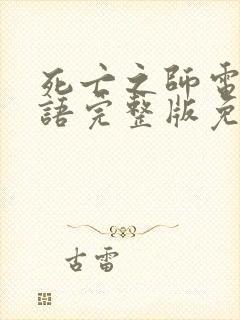 死亡之師電
語完整版免
古雷